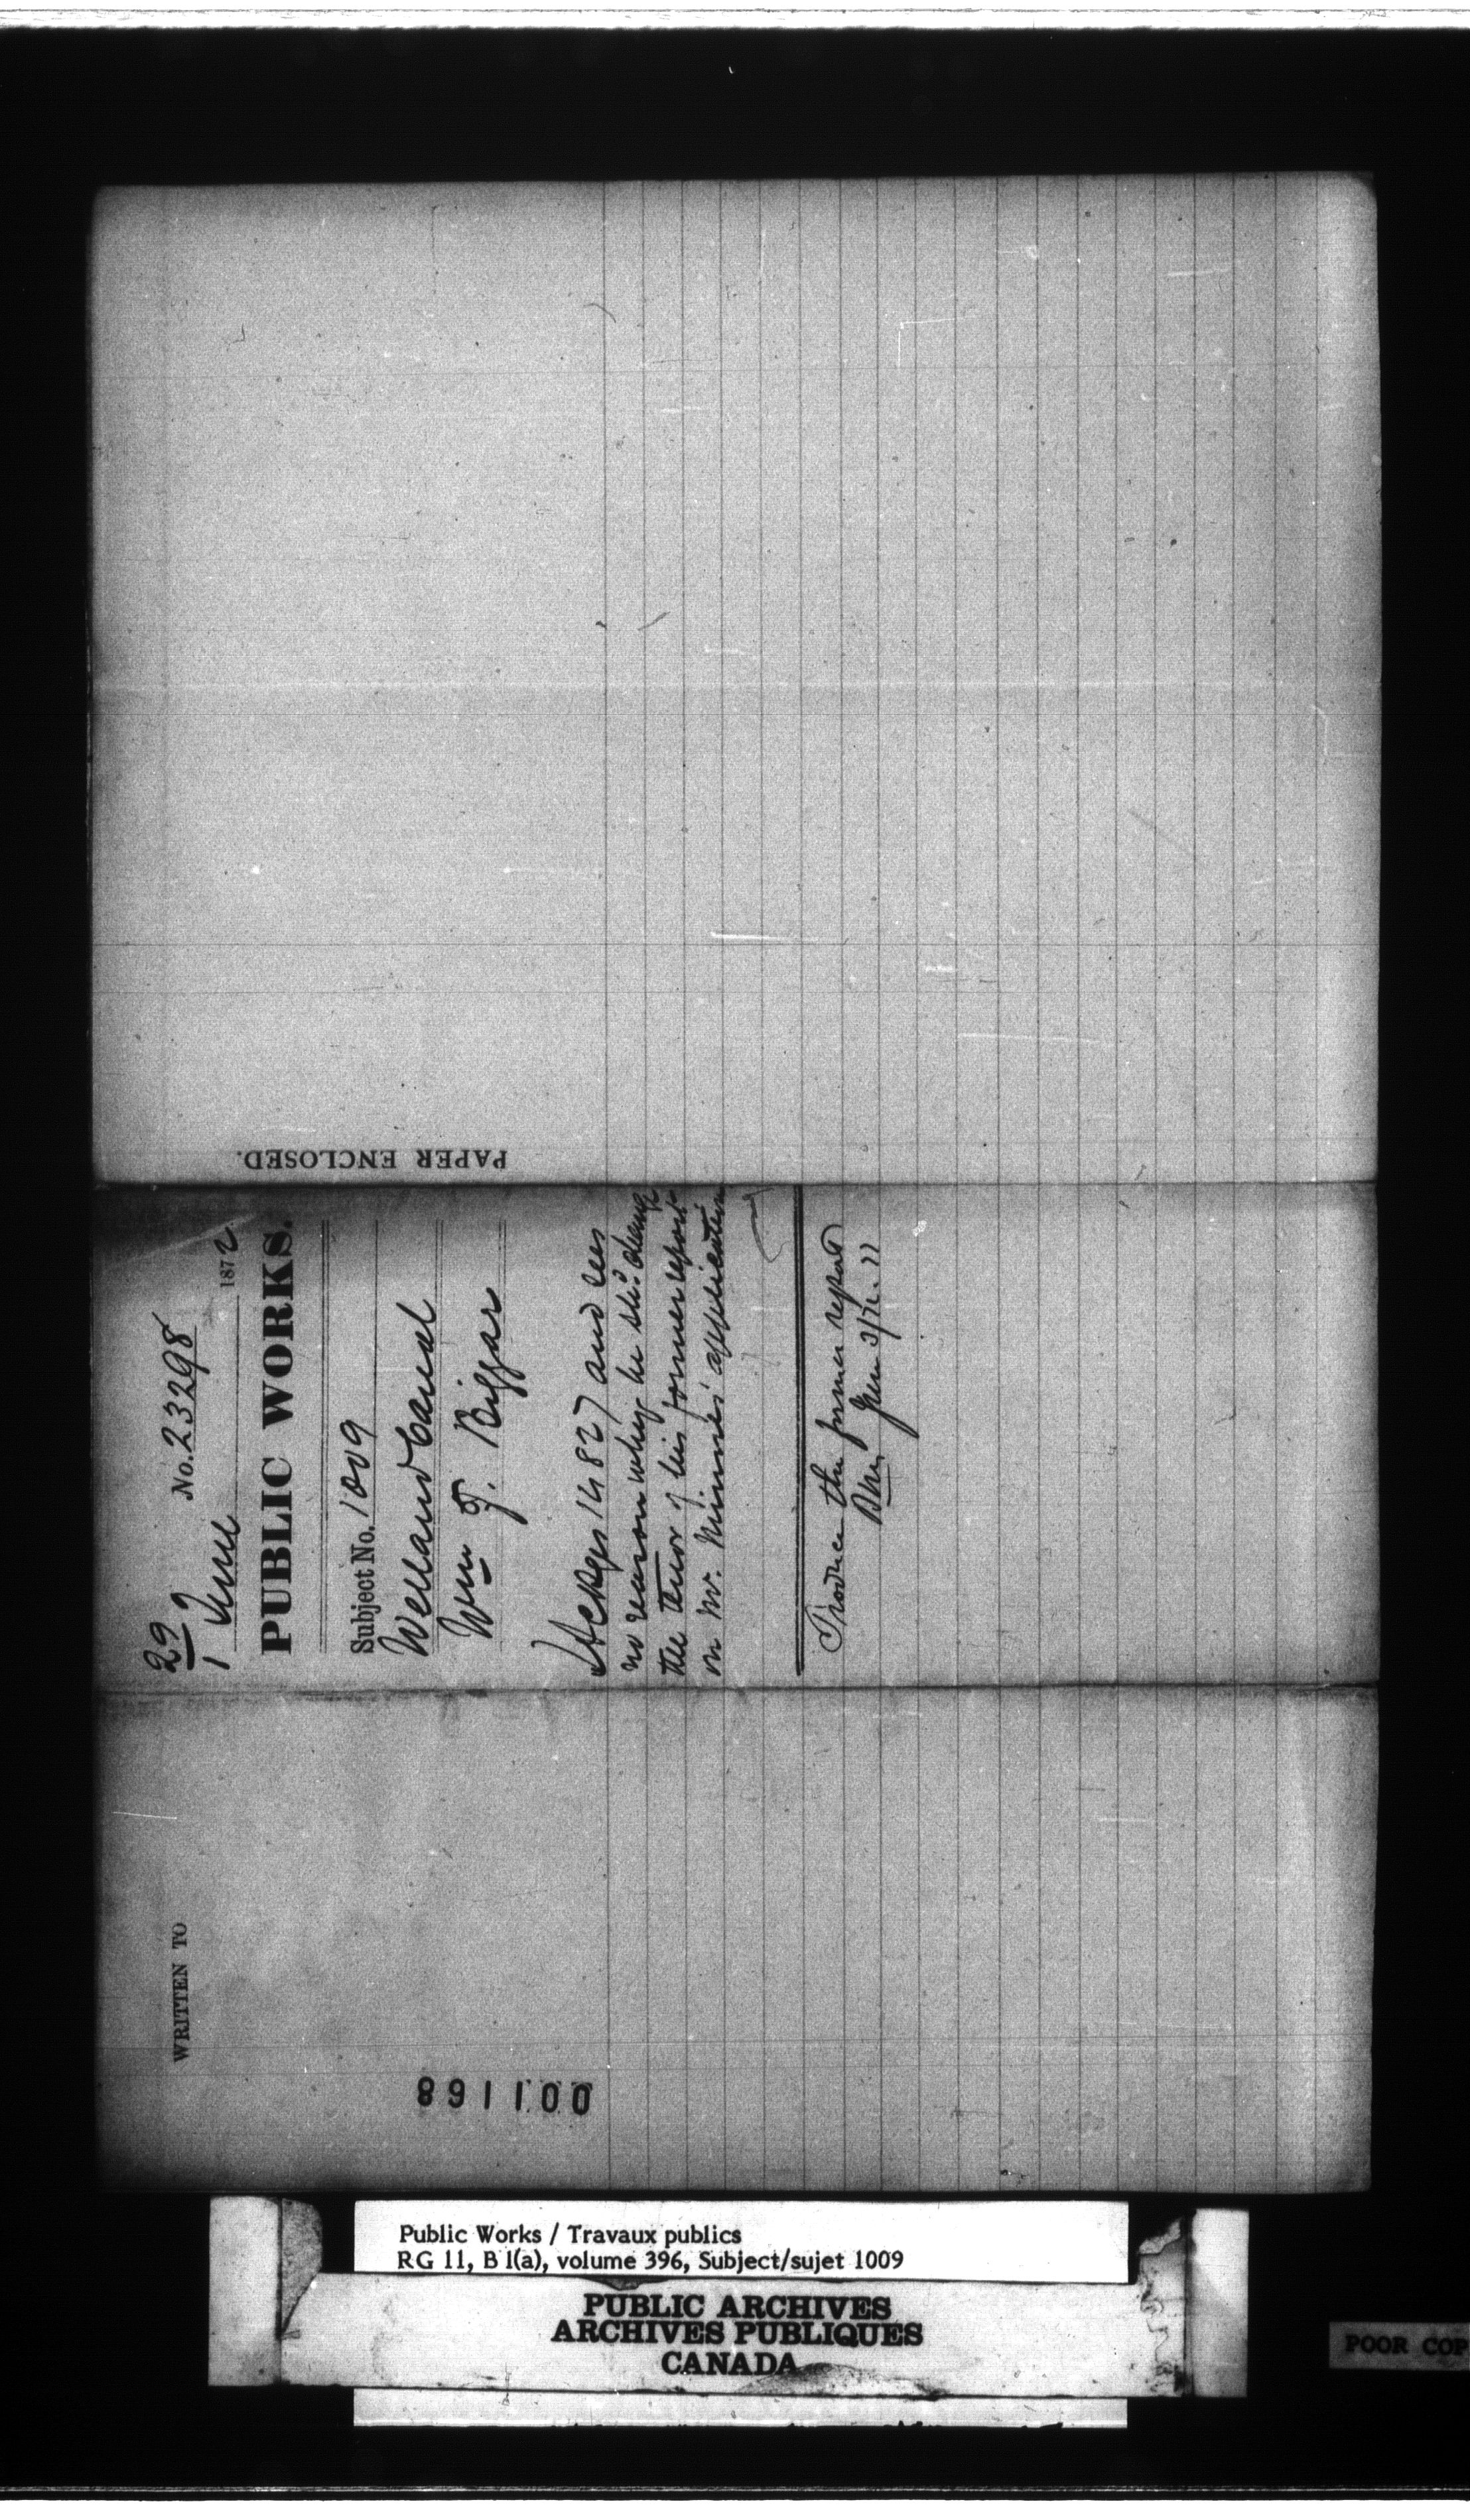 PAPER ENCLOSED.
29
No. 23298
1 June 1872
PUBLIC WORKS.
Subject No. 1009
Welland Canal
Wm F. Biggar
Ackges 14827 and sees
no reason why he shd. change
the tenor of his former report
on Mr. Minnis' application
Produce the former report
June 3/72.
WRITTEN TO
001168
Public Works / Travaux publics
RG 11, B 1(a), volume 396, Subject/sujet 1009
PUBLIC ARCHIVES
ARCHIVES PUBLIQUES
CANADA
POOR COP